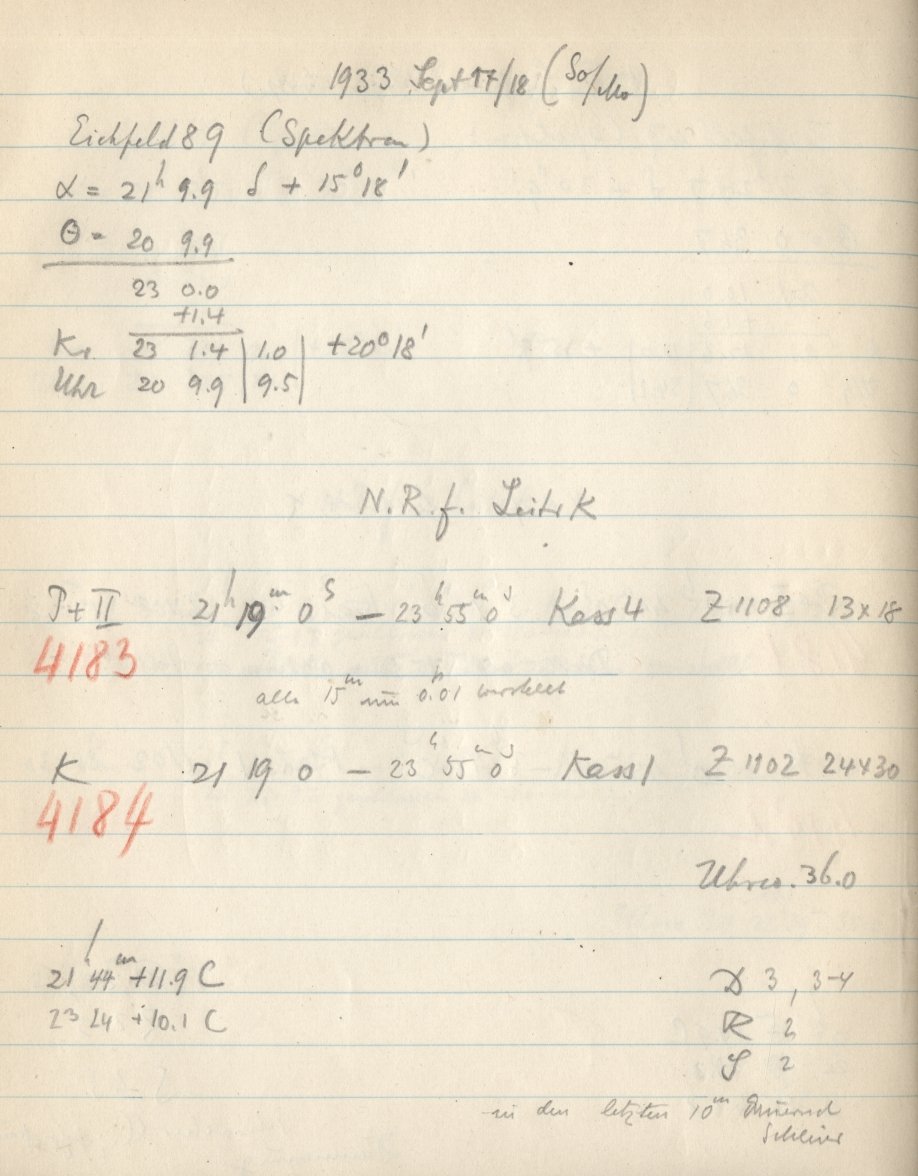 1933 Sept 17/18 (So/Mo)
Eichfeld 89 (Spektren)
α = 21ʰ 9.9 δ + 15°18'
Θ = 20 9.9
23 0.0
+1.4
K. 23 1.4 | 1.0 | +20°18'
Uhr 20 9.9 | 9.5 |
N.R.f. Leitr K
P+II 21ʰ 19ᵐ 0ˢ — 23ʰ 55ᵐ 0ˢ Kass 4 Z 1108 13x18
4183
alle 15ᵐ um 0.01 verstellt
K 21 19 0 — 23ʰ 55ᵐ 0ˢ Kass 1 Z 1102 24x30
4184
Uhrco. 36.0
21ʰ 44ᵐ +11.9 C
D 3, 3-4
23 24 +10.1 C
R 2
S 2
in den letzten 10ᵐ
Schleier